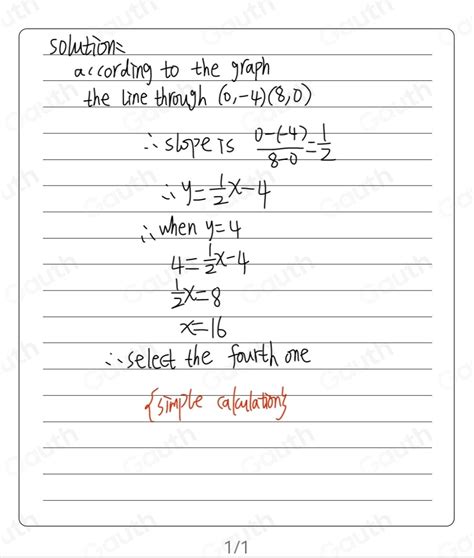 solution:
according to the graph
the line through (0,-4)(8,0)
∴ slope is 0-(-4)/8-0 = 1/2
∴ y=1/2x-4
∴ when y=4
4=1/2x-4
1/2x=8
x=16
∴ select the fourth one
{simple calculation}
1/1